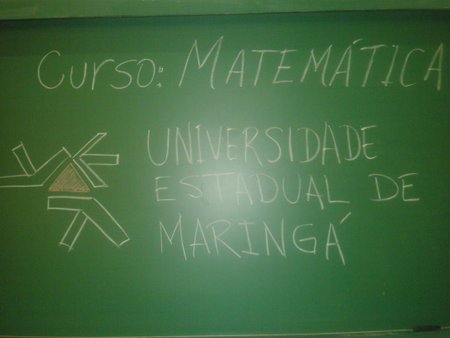 Curso: MATEMÁTICA
UNIVERSIDADE
ESTADUAL DE
MARINGÁ